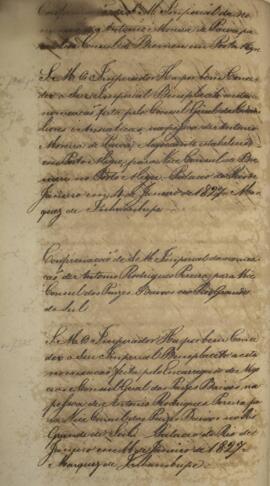 Confirmação de S. M. Imperial da no-
meação de Antonio Moreira de Paiva pa-
ra Vice Consul de Bremen em Porto Alegre
S. M. O Imperador Ha por bem Conce-
der o Seu Imperial Beneplacito a esta
nomeação feita pelo Consul Geral das Cidades
Livres e Anseaticas na pessoa de Antonio
Moreira de Paiva, Negociante estabelecido
em Porto Alegre, para Vice Consul de Bre-
men no Porto Alegre. Palacio do Rio de
Janeiro em 4 de Janeiro de 1827. Mar-
quez de Inhambupe.
Confirmação de S. M. Imperial da nomea-
ção de Antonio Rodrigues Pereira para Vice
Consul dos Paizes Baixos no Rio Grande
do Sul
S. M. O Imperador Ha por bem Conce-
der o Seu Imperial Beneplacito a esta
nomeação feita pelo Encarregado de Nego-
cios e Consul Geral dos Paizes Baixos na
pessoa de Antonio Rodrigues Pereira pa-
ra Vice Consul dos Paizes Baixos no Rio
Grande do Sul. Palacio do Rio de
Janeiro em de Janeiro de 1827.
Marquez de Inhambupe.